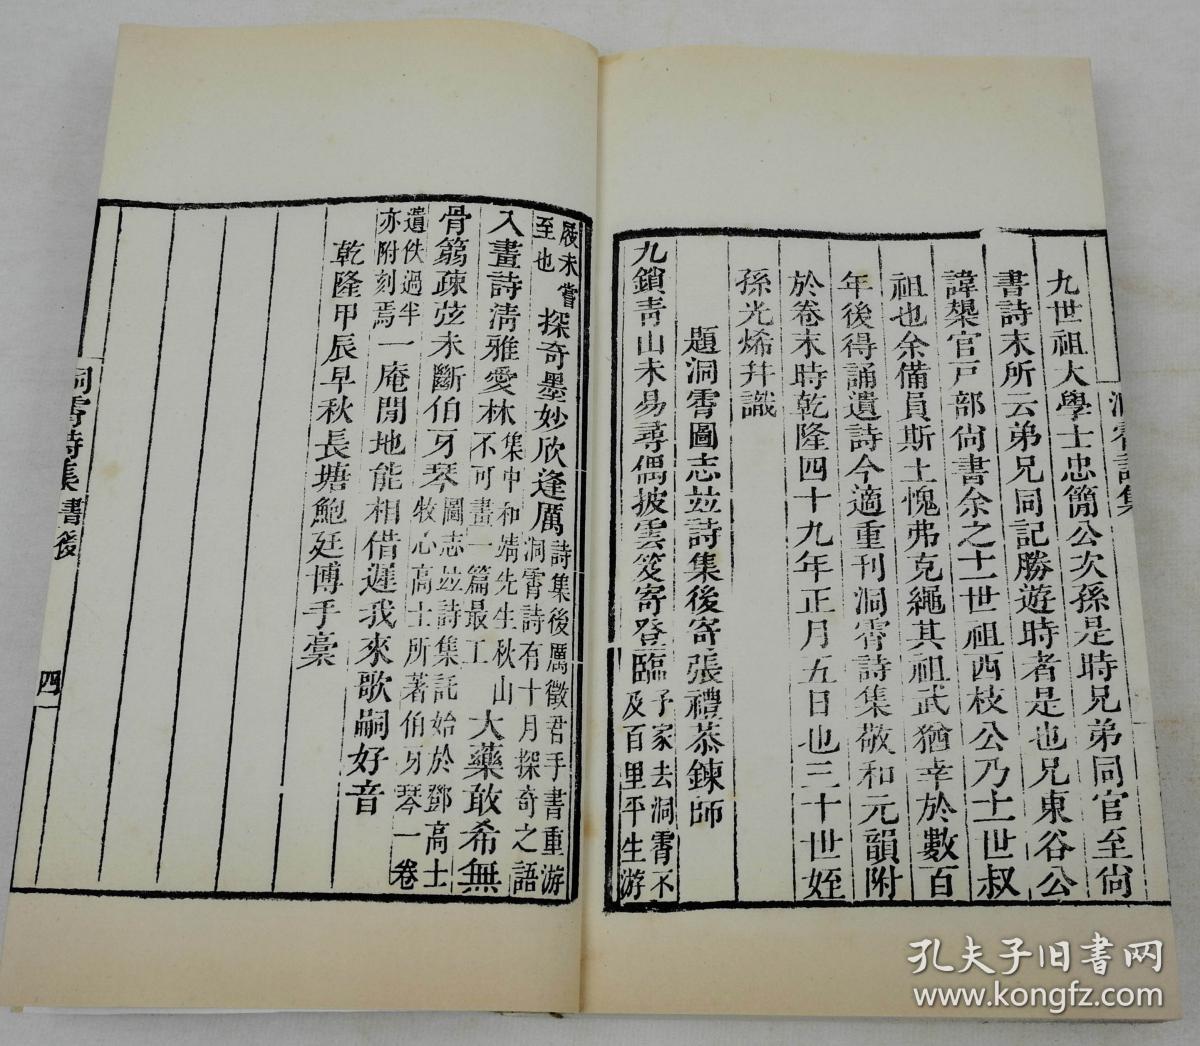 洞霄詩集
九世祖大學士忠簡公次孫是時兄弟同官至尚
書詩末所云弟兄同記勝遊時者是也兄東谷公
諱槼官戸部尚書余之十一世祖西枝公乃十一世叔
祖也余備員斯土愧弗克繩其祖武猶幸於數百
年後得誦遺詩今適重刊洞霄詩集敬和元韻附
於卷末時乾隆四十九年正月五日也三十世姪
孫光烯幷識
題洞霄圖志竝詩集後寄張禮恭鍊師
九鎖靑山未易尋偶披雲笈寄登臨予家去洞霄不及百里平生游
屐未嘗至也探奇墨妙欣逢厲詩集後厲徵君手書重游洞霄詩有十月探奇之語
入畫詩淸雅愛林集中和靖先生秋山不可畫一篇最工大藥敢希無
骨篛疎弦未斷伯牙琴圖志竝詩集託始於鄧高士牧心高士所著伯牙琴一卷
遺佚過半亦附刻焉一庵閒地能相借遲我來歌嗣好音
乾隆甲辰早秋長塘鮑廷博手稾
洞霄詩集 書後 四
孔夫子旧书网
www.kongfz.com